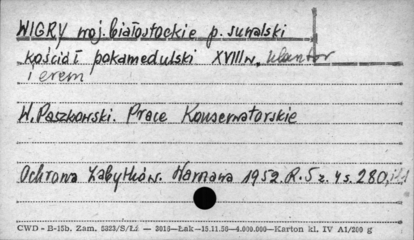 WIGRY woj. białostockie p. suwalski
kościół pokamedulski XVIII w., klasztor
i erem
W. Paszkowski. Prace Konserwatorskie
Ochrona Zabytków. Warszawa 1952. R. 5 z. 4 s. 280, il.
CWD - B-15b. Zam. 5323/S/Łi — 3016—Łak—15.11.50—4.000.000—Karton kl. IV A1/200 g